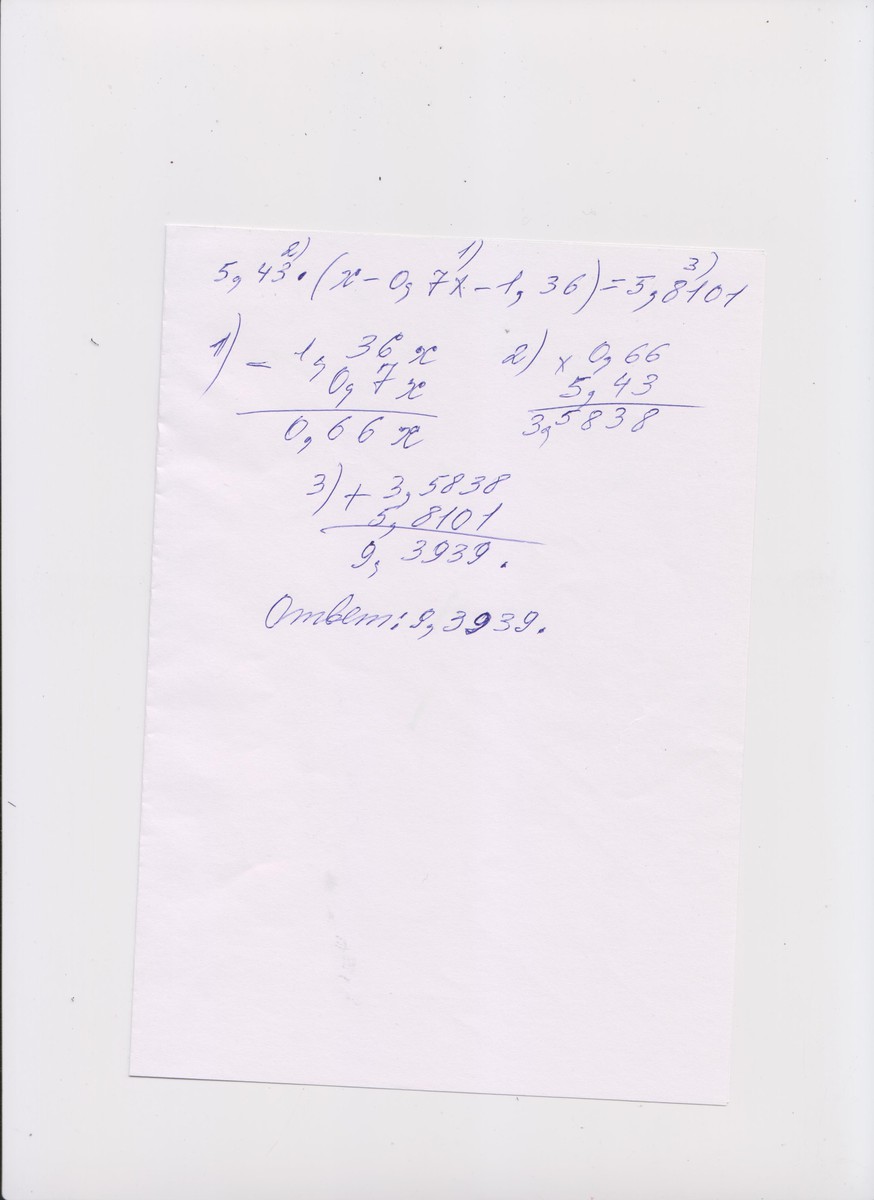 5,43 · (x - 0,7x - 1,36) = 5,8101
2) 1) 3)
1) - 1,36x
0,7x
0,66x
2) x 0,66
5,43
3,5838
3) + 3,5838
5,8101
9,3939.
Ответ: 9,3939.